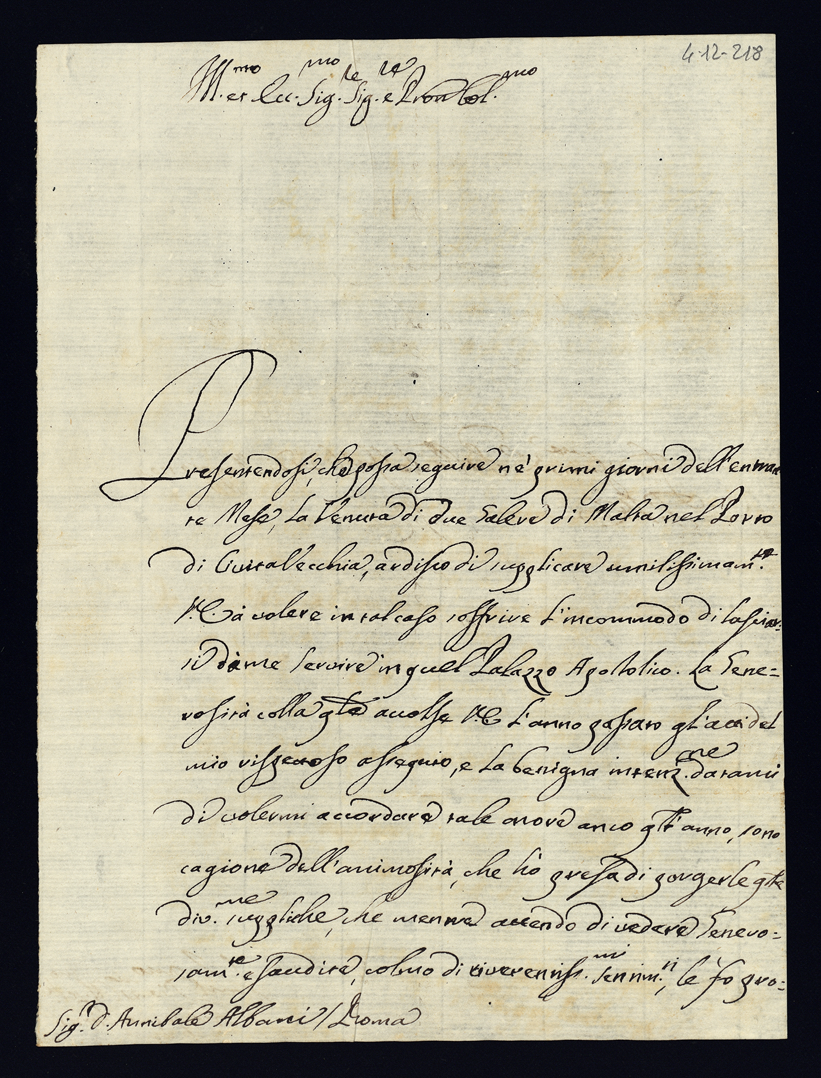 4-12-218
Ill.mo et Ecc.mo Sig.re Sig.re e Pron Col.mo
Presentendosi, che possa seguire ne' primi giorni dell'entran
te Mese, la Venuta di due Galere di Malta nel Porto
di Civita Vecchia, ardisco di supplicare umilissimam.te
V.E. à volere in tal caso soffrire l'incommodo di lasciar:
si da me servire in quel Palazzo Apostolico. La Gene=
rosità colla q'le accolse V.E. l'anno passato gl'atti del
mio rispettoso ossequio, e la benigna intenz.ne datami
di volermi accordare tale onore anco q'st'anno, sono
cagione dell'animosità, che hò presa di porgerle q'te
div.me suppliche, che mentre attendo di vedere Genero=
sam.te esaudite, colmo di riverentiss.mi sentim.ti, le fo pro=
Sig.r D. Annibale Albani / Roma